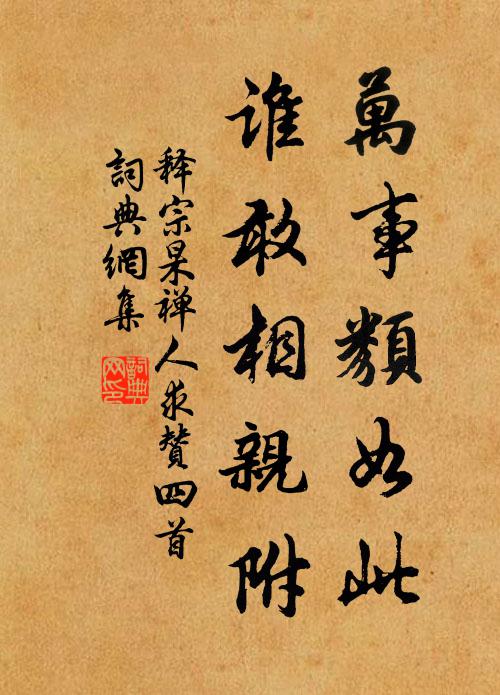 萬事類如此
誰敢相親附
释宗杲禅人求赞四首
詞典網集
詞典网印